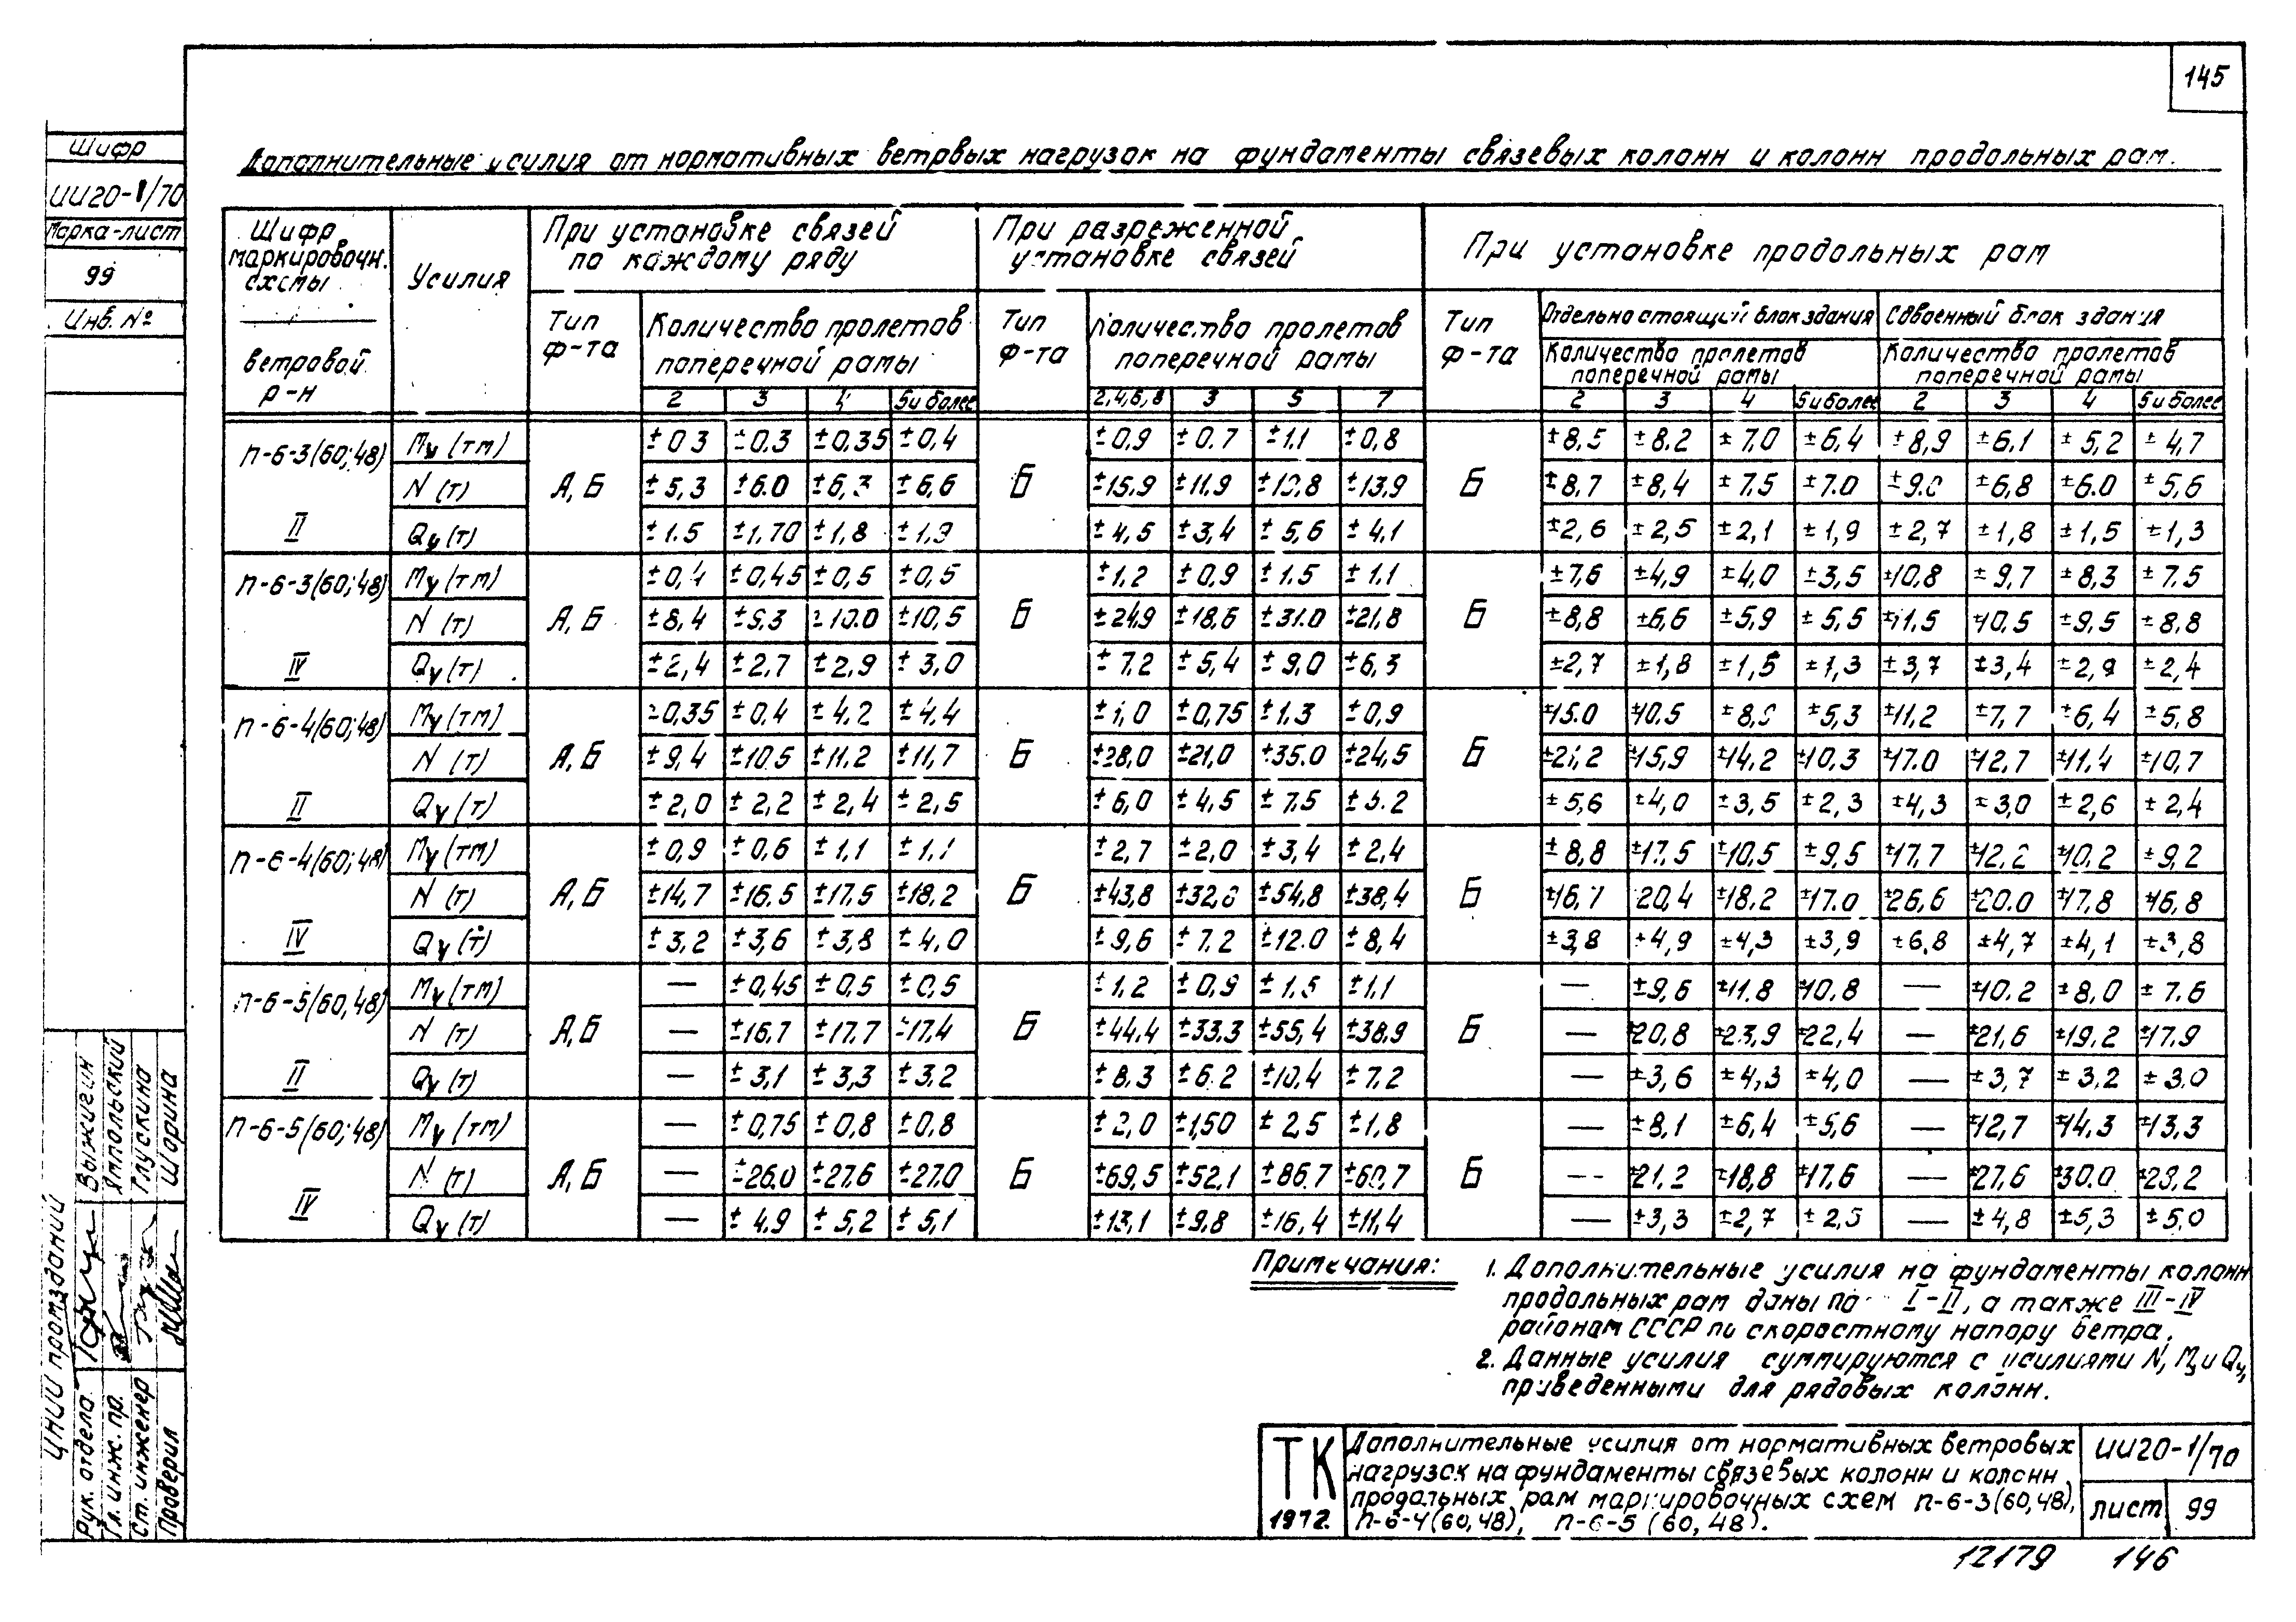 145
Шифр
ИИ20-1/70
Марка-лист
99
Инв. №
Дополнительные усилия от нормативных ветровых нагрузок на фундаменты связевых колонн и колонн продольных рам.
Шифр маркировочн. схемы
ветровой р-н
Усилия
При установке связей по каждому ряду
При разреженной установке связей
При установке продольных рам
Тип ф-та
Количество пролетов поперечной рамы
Тип ф-та
Количество пролетов поперечной рамы
Тип ф-та
Отдельно стоящий блок здания
Сдвоенный блок здания
Количество пролетов поперечной рамы
Количество пролетов поперечной рамы
2 3 4 5 и более 2,4,6,8 3 5 7 2 3 4 5 и более 2 3 4 5 и более
П-6-3(60;48) II А, Б Б Б
Му (тм) ±0.3 ±0.3 ±0.35 ±0,4 ±0,9 ±0.7 ±1.1 ±0,8 ±8,5 ±8.2 ±7,0 ±6,4 ±8,9 ±6,1 ±5,2 ±4,7
N (т) ±5,3 ±6.0 ±6,3 ±6,6 ±15.9 ±11,9 ±13,9 ±8,7 ±8,4 ±7.5 ±7.0 ±6,8 ±6.0 ±5,6
Qу (т) ±1.5 ±1,70 ±1,8 ±1,9 ±4,5 ±3,4 ±5,6 ±4,1 ±2,6 ±2,5 ±2,1 ±1,9 ±2,7 ±1,8 ±1,5 ±1,3
П-6-3(60;48) IV А, Б Б Б
Му (тм) ±0,4 ±0,45 ±0,5 ±0,5 ±1.2 ±0,9 ±1.5 ±1.1 ±7,6 ±4,9 ±4,0 ±3,5 ±10.8 ±9,7 ±8,3 ±7.5
N (т) ±8,4 ±10.0 ±10,5 ±24,9 ±18,6 ±31.0 ±21,8 ±8,8 ±6,6 ±5,9 ±5,5 ±11,5 ±10,5 ±9,5 ±8,8
Qу (т) ±2,4 ±2,7 ±2,9 ±3,0 ±7.2 ±5,4 ±9,0 ±6,3 ±2,7 ±1,8 ±1,5 ±1,3 ±3,7 ±3,4 ±2,9 ±2,4
П-6-4(60;48) II А, Б Б Б
Му (тм) ±0,35 ±0,4 ±4.2 ±4.4 ±1,0 ±0,75 ±1.3 ±0,9 ±15.0 ±10.5 ±5,3 ±11,2 ±7,7 ±6,4 ±5,8
N (т) ±9,4 ±10.5 ±11.2 ±11,7 ±28,0 ±21,0 ±35.0 ±24,5 ±21,2 ±15,9 ±14,2 ±10,3 ±17.0 ±12,7 ±11,4 ±10,7
Qу (т) ±2,0 ±2,2 ±2,4 ±2,5 ±6,0 ±4,5 ±7.5 ±5.2 ±5,6 ±4,0 ±3,5 ±2,3 ±4,3 ±3,0 ±2,6 ±2,4
П-6-4(60;48) IV А, Б Б Б
Му (тм) ±0,9 ±0,6 ±1,1 ±1,1 ±2,7 ±2,0 ±3,4 ±2,4 ±8,8 ±10,5 ±9,5 ±17,7 ±12.2 ±10,2 ±9,2
N (т) ±14,7 ±16.5 ±17,5 ±18,2 ±43,8 ±54,8 ±38,4 ±16,7 20,4 ±18,2 ±17.0 ±26,6 ±20.0 ±17,8 ±16,8
Qу (т) ±3,2 ±3,6 ±3,8 ±4,0 ±9,6 ±7.2 ±12.0 ±8,4 ±3,8 ±4,9 ±4,3 ±3,9 ±6,8 ±4,7 ±4,1 ±3,8
П-6-5(60,48) II А, Б Б Б
Му (тм) — ±0,45 ±0,5 ±0,5 ±1.2 ±0,9 ±1,5 ±1,1 — ±9,6 ±11.8 ±10,8 — ±10.2 ±8,0 ±7.6
N (т) — ±16.7 ±17,7 ±17,4 ±44,4 ±33.3 ±55,4 ±38,9 — ±20,8 ±23,9 ±22,4 — ±21,6 ±19,2 ±17.9
Qу (т) — ±3,1 ±3,3 ±3.2 ±8.3 ±6.2 ±10.4 ±7.2 — ±3,6 ±4,3 ±4,0 — ±3,7 ±3,2 ±3.0
П-6-5(60;48) IV А, Б Б Б
Му (тм) — ±0,75 ±0,8 ±0,8 ±2,0 ±1,50 ±2,5 ±1,8 — ±8,1 ±6,4 ±5,6 — ±12,7 ±14,3 ±13,3
N (т) — ±26.0 ±27,6 ±27.0 ±69,5 ±52,1 ±86.7 ±60,7 — ±21,2 ±18,8 ±17,6 — ±27,6 ±30.0
Qу (т) — ±4.9 ±5,2 ±5,1 ±13,1 ±9,8 ±16,4 ±11,4 — ±3,3 ±2,7 ±2,5 — ±4,8 ±5,3 ±5.0
Примечания:
1. Дополнительные усилия на фундаменты колонн
продольных рам даны по I-II, а также III-IV
районам СССР по скоростному напору ветра.
2. Данные усилия суммируются с усилиями N, Му и Qу,
приведенными для рядовых колонн.
ЦНИИ промзданий
Рук. отдела Выжигин
Гл. инж. пр. Ямпольский
Ст. инженер Глускина
Проверил Шорина
ТК
1972.
Дополнительные усилия от нормативных ветровых
нагрузок на фундаменты связевых колонн и колонн
продольных рам маркировочных схем П-6-3(60,48),
П-6-4(60,48), П-6-5 (60,48).
ИИ20-1/70
лист 99
12179 146